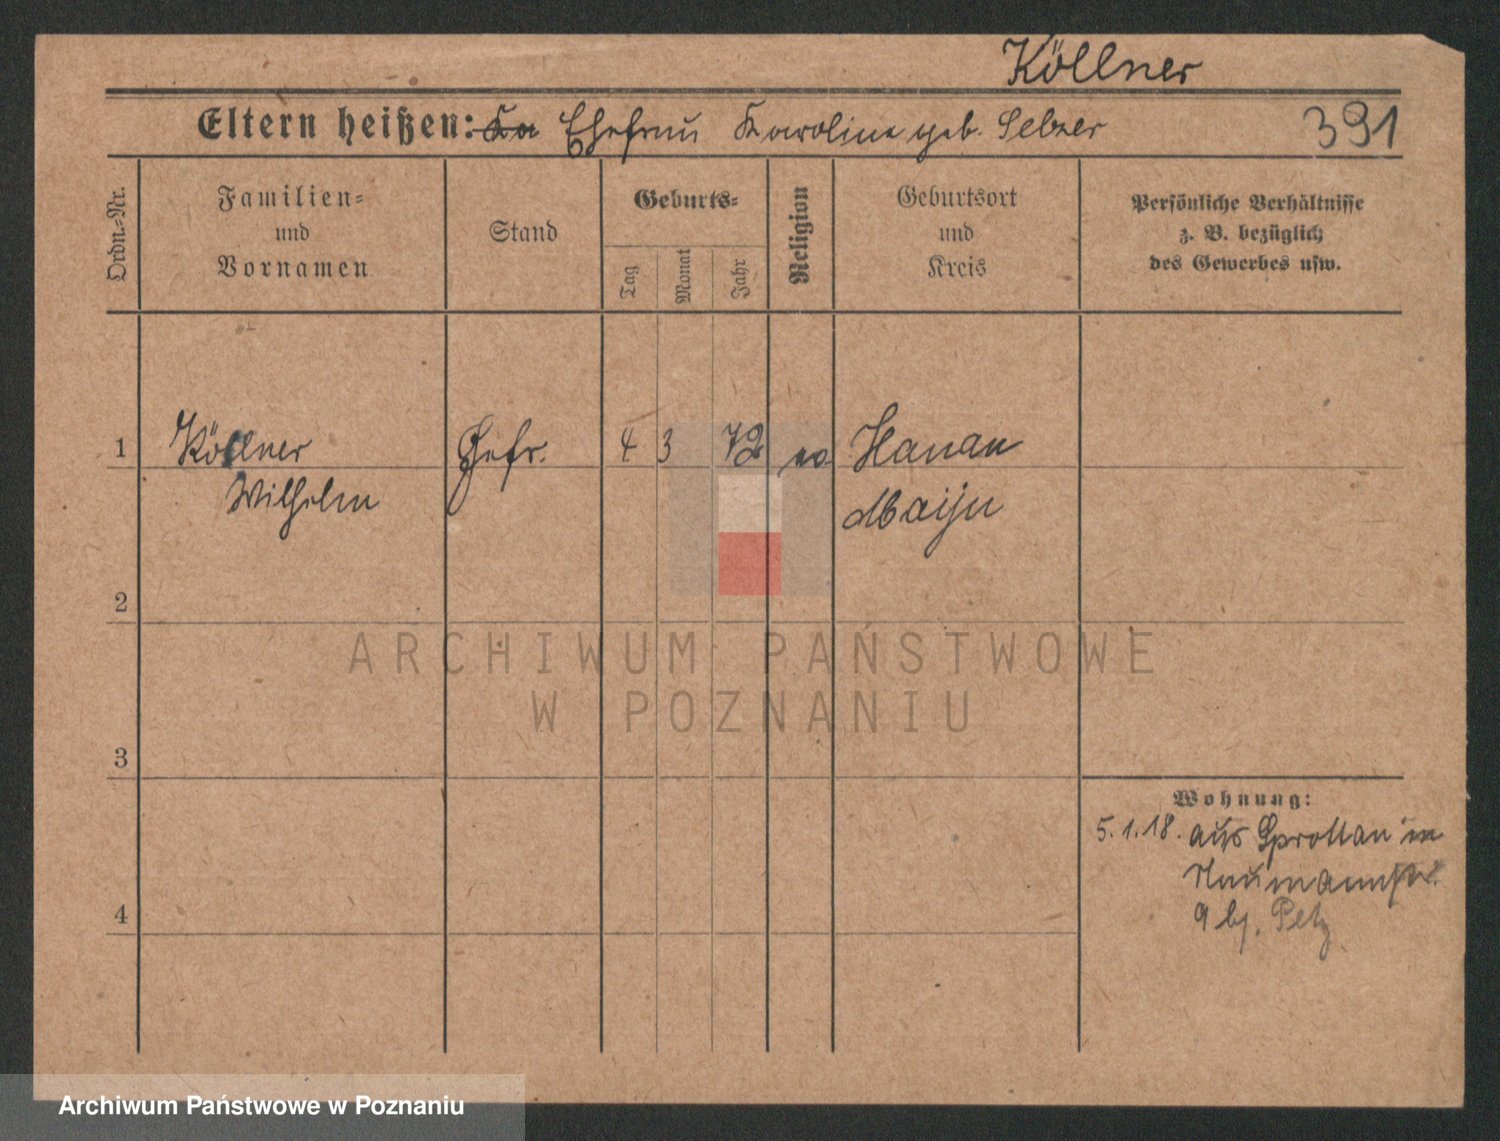 Köllner
Eltern heißen: Ka Ehefrau Karoline geb. Selzer 391
Ordn.-Nr.
Familien-
und
Vornamen
Stand
Geburts-
Tag
Monat
Jahr
Religion
Geburtsort
und
Kreis
Persönliche Verhältnisse
z. B. bezüglich
des Gewerbes usw.
1 Köllner Gefr. 4 3 72 ev Hanau
Wilhelm
2
ARCHIWUM PAŃSTWOWE
W POZNANIU
3
Wohnung:
5.1.18. aus Sprottau in
Naumannstr.
9 bj. Petz
4
Archiwum Państwowe w Poznaniu